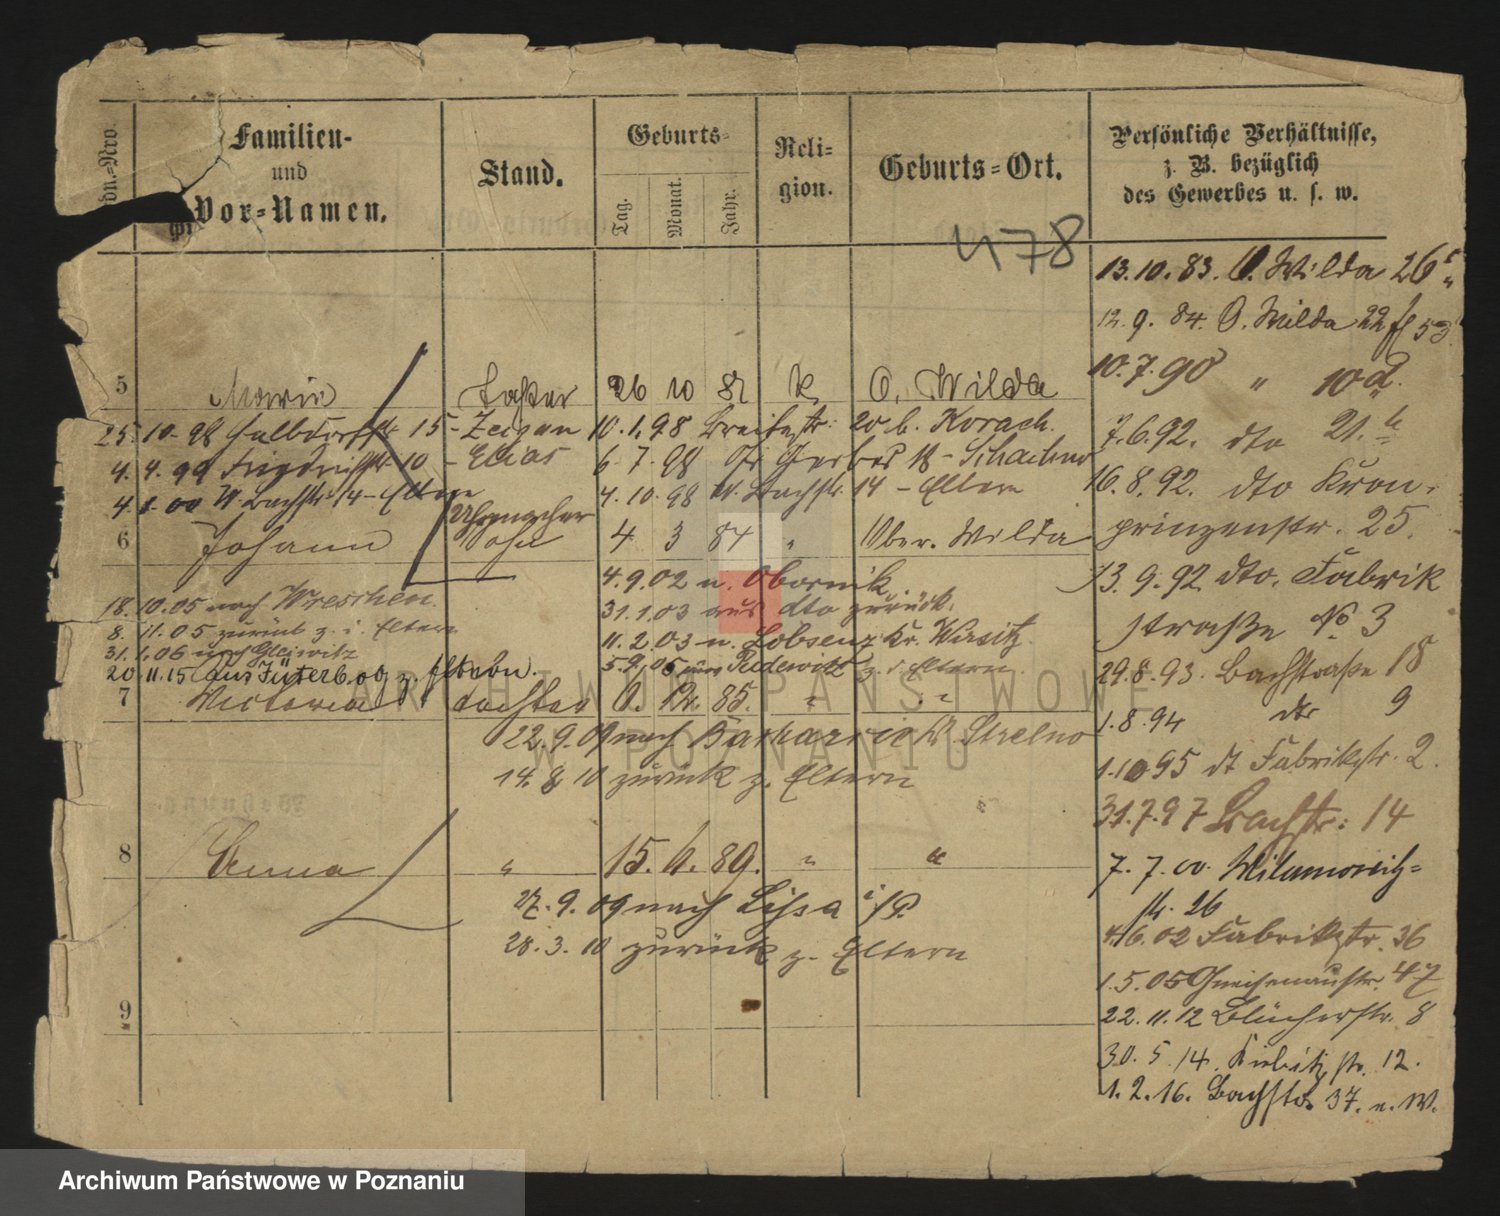 Lfdn.-Nro.
Familien-
und
Vor-Namen.
Stand.
Geburts-
Tag.
Monat.
Jahr.
Reli-
gion.
Geburts-Ort.
Persönliche Verhältnisse,
z. B. bezüglich
des Gewerbes u. s. w.
478
13.10.83. O. Wilda 26
12. 9. 84. O. Wilda 22
10.7.90 " 10a.
5 Maria Tochter 26 10 82 k O. Wilda
25. 10. 98 15 - Zeigen 10.1.98 Breitestr: 20 b. Korach.
7.6.92. dto 21.
4. 4. 99 10 - Elias 6.7.98 Gr Gerber 18 -
4. 1. 00 W. Bachstr 14 - Eltern 4.10.98 W. Bachstr. 14 - Eltern
16.8.92. dto Kron-
prinzenstr. 25.
Uhrmacher
6 Johann Sohn 4 3 84 " Ober. Wilda
4.9.02 n. Obornik
13.9.92 dto. Fabrik
straße No 3
18.10.05 nach Wreschen.
31.1.03 aus dto zurück.
8. 11.05 zurück z. d. Eltern
11.2.03 n. Lobsenz Kr. Wirsitz
31.1.06 nach Gleiwitz
5.9.05 z. d. Eltern
29.8.93. Bachstraße 18
20 11.15 aus Jüterbog z. Eltern
7 Victoria Tochter 6. 12. 85. " "
1.8.94 dto 9
22.9.09 nach Kr. Strelno
1.10 95 dt Fabrikstr. 2.
14. 8 10 zurück z. Eltern
31.7.97 Bachstr: 14
8 Anna " 15. 6. 89. " "
7. 7. 00. Wilamowitz-
str. 26
27. 9. 09 nach Lissa i/P.
4.6.02 Fabrikstr. 36
28. 3. 10 zurück z. Eltern
1.5.05 Gneisenaustr. 47
9
22.11.12 Blücherstr. 8
30. 5 .14. str. 12.
1. 2. 16. Bachstr. 37. n. W.
ARCHIWUM PAŃSTWOWE
W POZNANIU
Archiwum Państwowe w Poznaniu